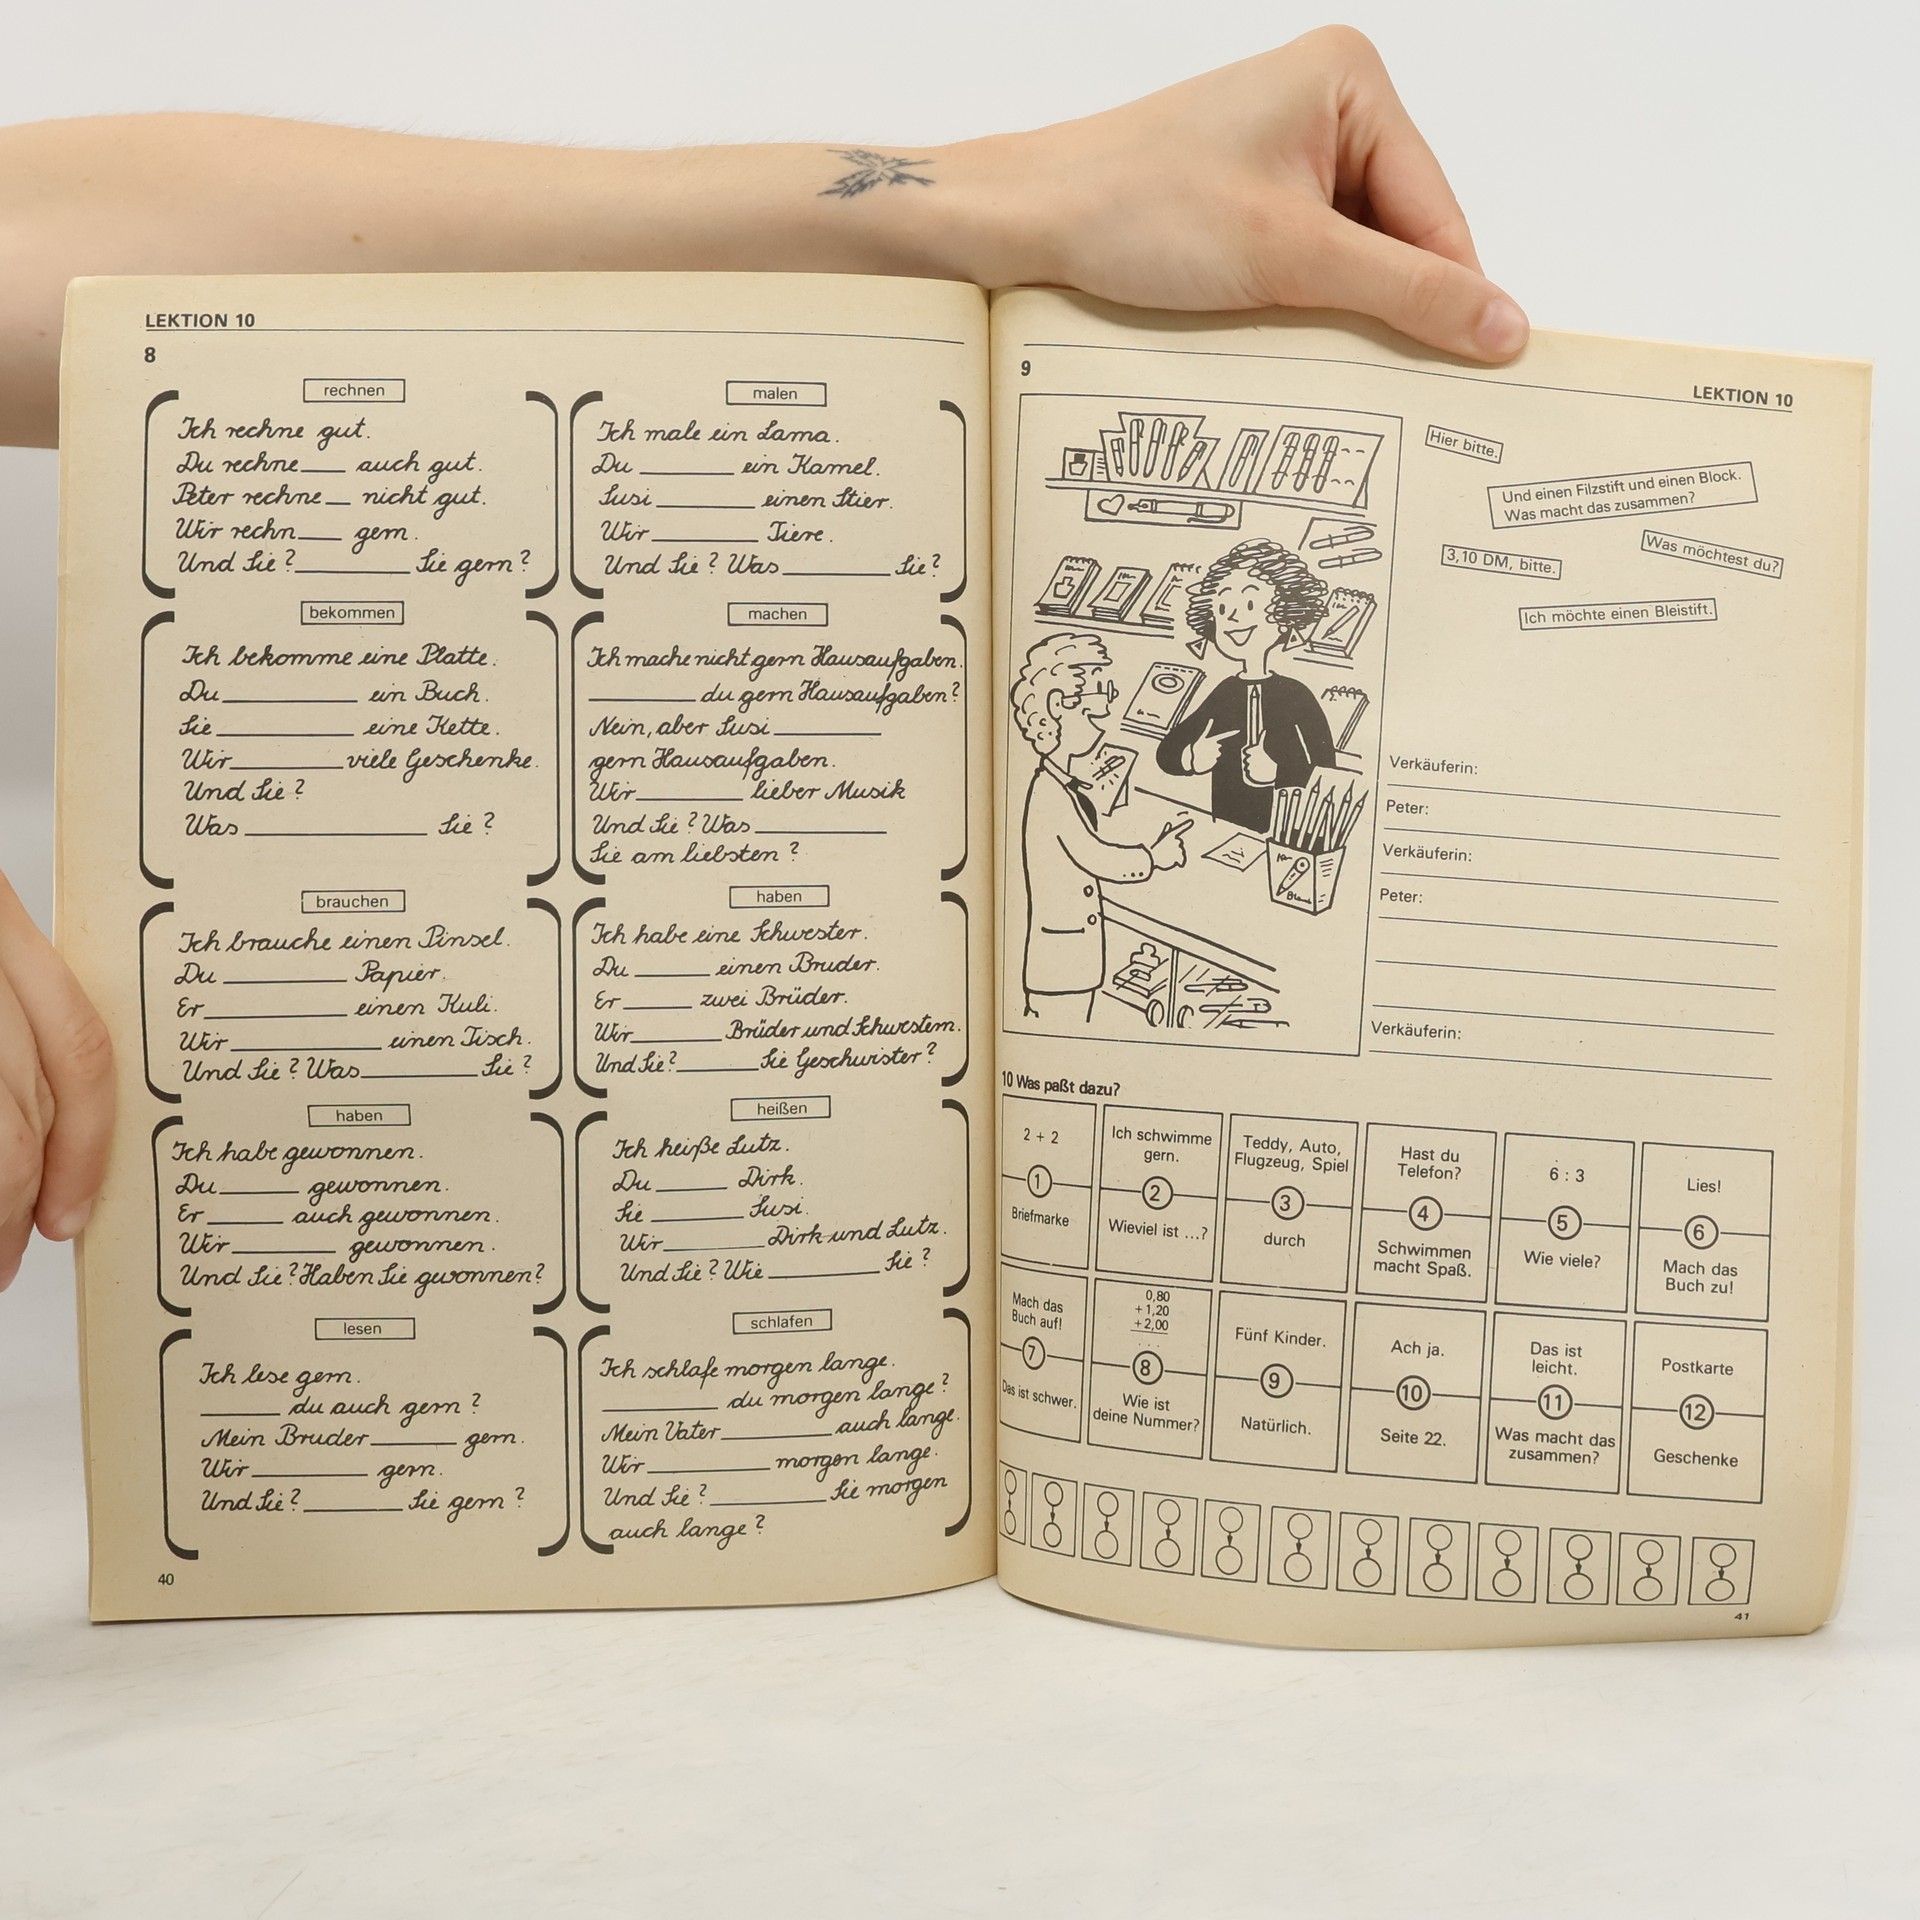 LEKTION 10
8
rechnen
Ich rechne gut.
Du rechne___ auch gut.
Peter rechne__ nicht gut.
Wir rechn___ gern.
Und Sie?________ Sie gern?
malen
Ich male ein Lama.
Du ______ ein Kamel.
Susi ______ einen Stier.
Wir ______ Tiere.
Und Sie? Was ______ Sie?
bekommen
Ich bekomme eine Platte.
Du ______ ein Buch.
Sie ______ eine Kette.
Wir ______ viele Geschenke.
Und Sie?
Was ______ Sie?
machen
Ich mache nicht gern Hausaufgaben.
______ du gern Hausaufgaben?
Nein, aber Susi ______
gern Hausaufgaben.
Wir ______ lieber Musik
Und Sie? Was ______
Sie am liebsten?
brauchen
Ich brauche einen Pinsel.
Du ______ Papier.
Er ______ einen Kuli.
Wir ______ einen Tisch.
Und Sie? Was ______ Sie?
haben
Ich habe eine Schwester.
Du ______ einen Bruder.
Er ______ zwei Brüder.
Wir ______ Brüder und Schwestern.
Und Sie? ______ Sie Geschwister?
haben
Ich habe gewonnen.
Du ______ gewonnen.
Er ______ auch gewonnen.
Wir ______ gewonnen.
Und Sie? Haben Sie gewonnen?
heißen
Ich heiße Lutz.
Du ______ Dirk.
Sie ______ Susi.
Wir ______ Dirk und Lutz.
Und Sie? Wie ______ Sie?
lesen
Ich lese gern.
______ du auch gern?
Mein Bruder ______ gern.
Wir ______ gern.
Und Sie? ______ Sie gern?
schlafen
Ich schlafe morgen lange.
______ du morgen lange?
Mein Vater ______ auch lange.
Wir ______ morgen lange.
Und Sie? ______ Sie morgen
auch lange?
40
LEKTION 10
9
Hier bitte.
Und einen Filzstift und einen Block.
Was macht das zusammen?
Was möchtest du?
3,10 DM, bitte.
Ich möchte einen Bleistift.
Verkäuferin:
Peter:
Verkäuferin:
Peter:
Verkäuferin:
10 Was paßt dazu?
2 + 2
1
Briefmarke
Ich schwimme
gern.
2
Wieviel ist ...?
Teddy, Auto,
Flugzeug, Spiel
3
durch
Hast du
Telefon?
4
Schwimmen
macht Spaß.
6 : 3
5
Wie viele?
Lies!
6
Mach das
Buch zu!
Mach das
Buch auf!
7
Das ist schwer.
0,80
+ 1,20
+ 2,00
...
8
Wie ist
deine Nummer?
Fünf Kinder.
9
Natürlich.
Ach ja.
10
Seite 22.
Das ist
leicht.
11
Was macht das
zusammen?
Postkarte
12
Geschenke
41